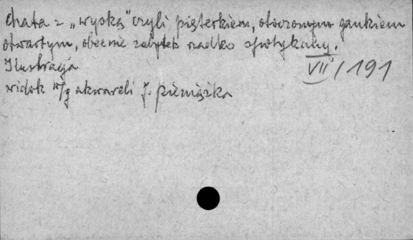 chata z „wyską” czyli piąterkiem, otoczonym gankiem
otwartym, obecnie zabytek rzadko spotykany.
Ilustracja VII/191
widok w/g akwareli J. Pieniążka